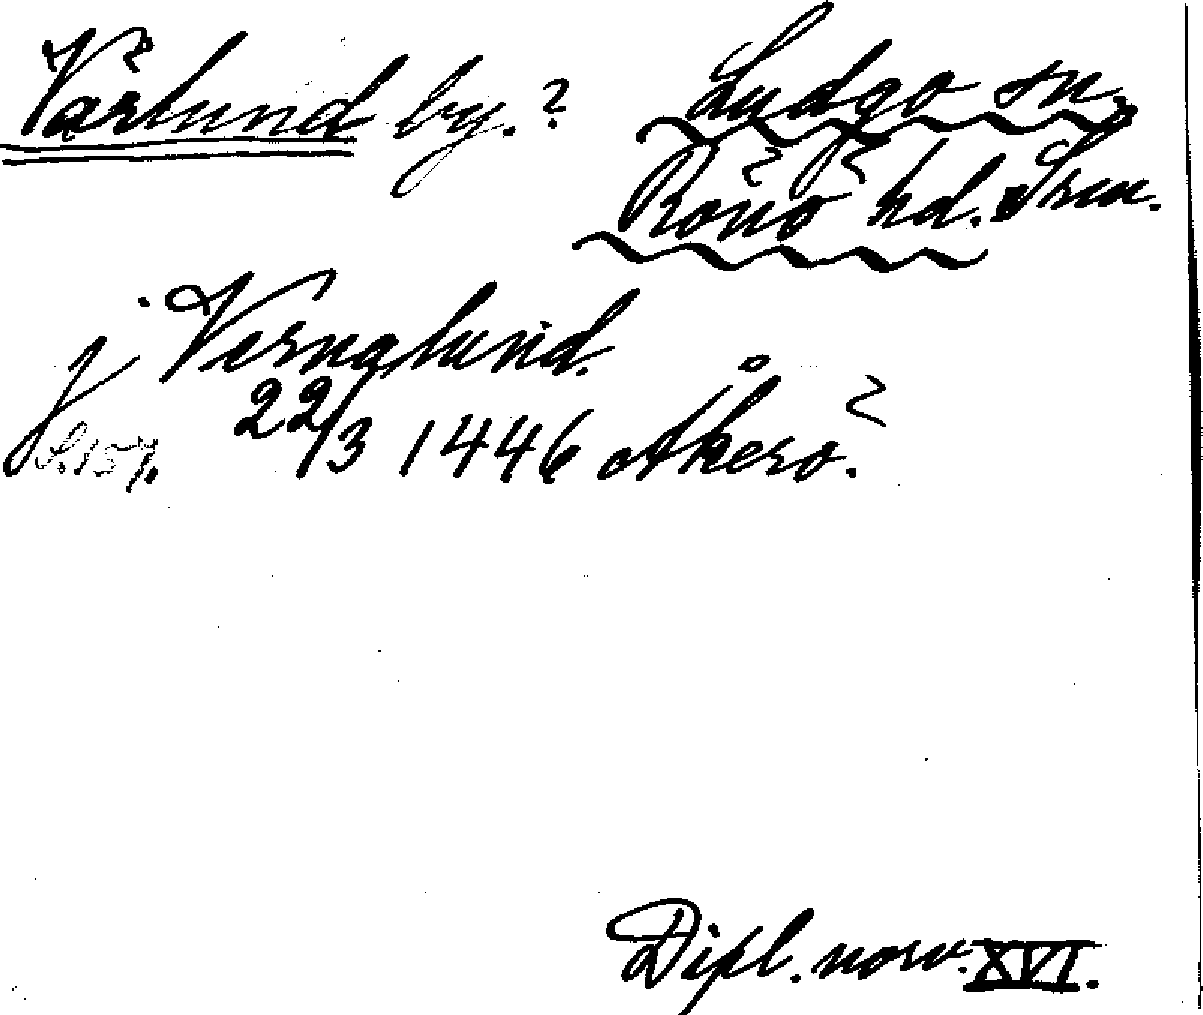 Värlund by.? Ludgo sn,
Rönö hd. Srm.
j Vernalund.
S. 157. 22/3 1446 Åkerö.
Dipl. norv. XVI.